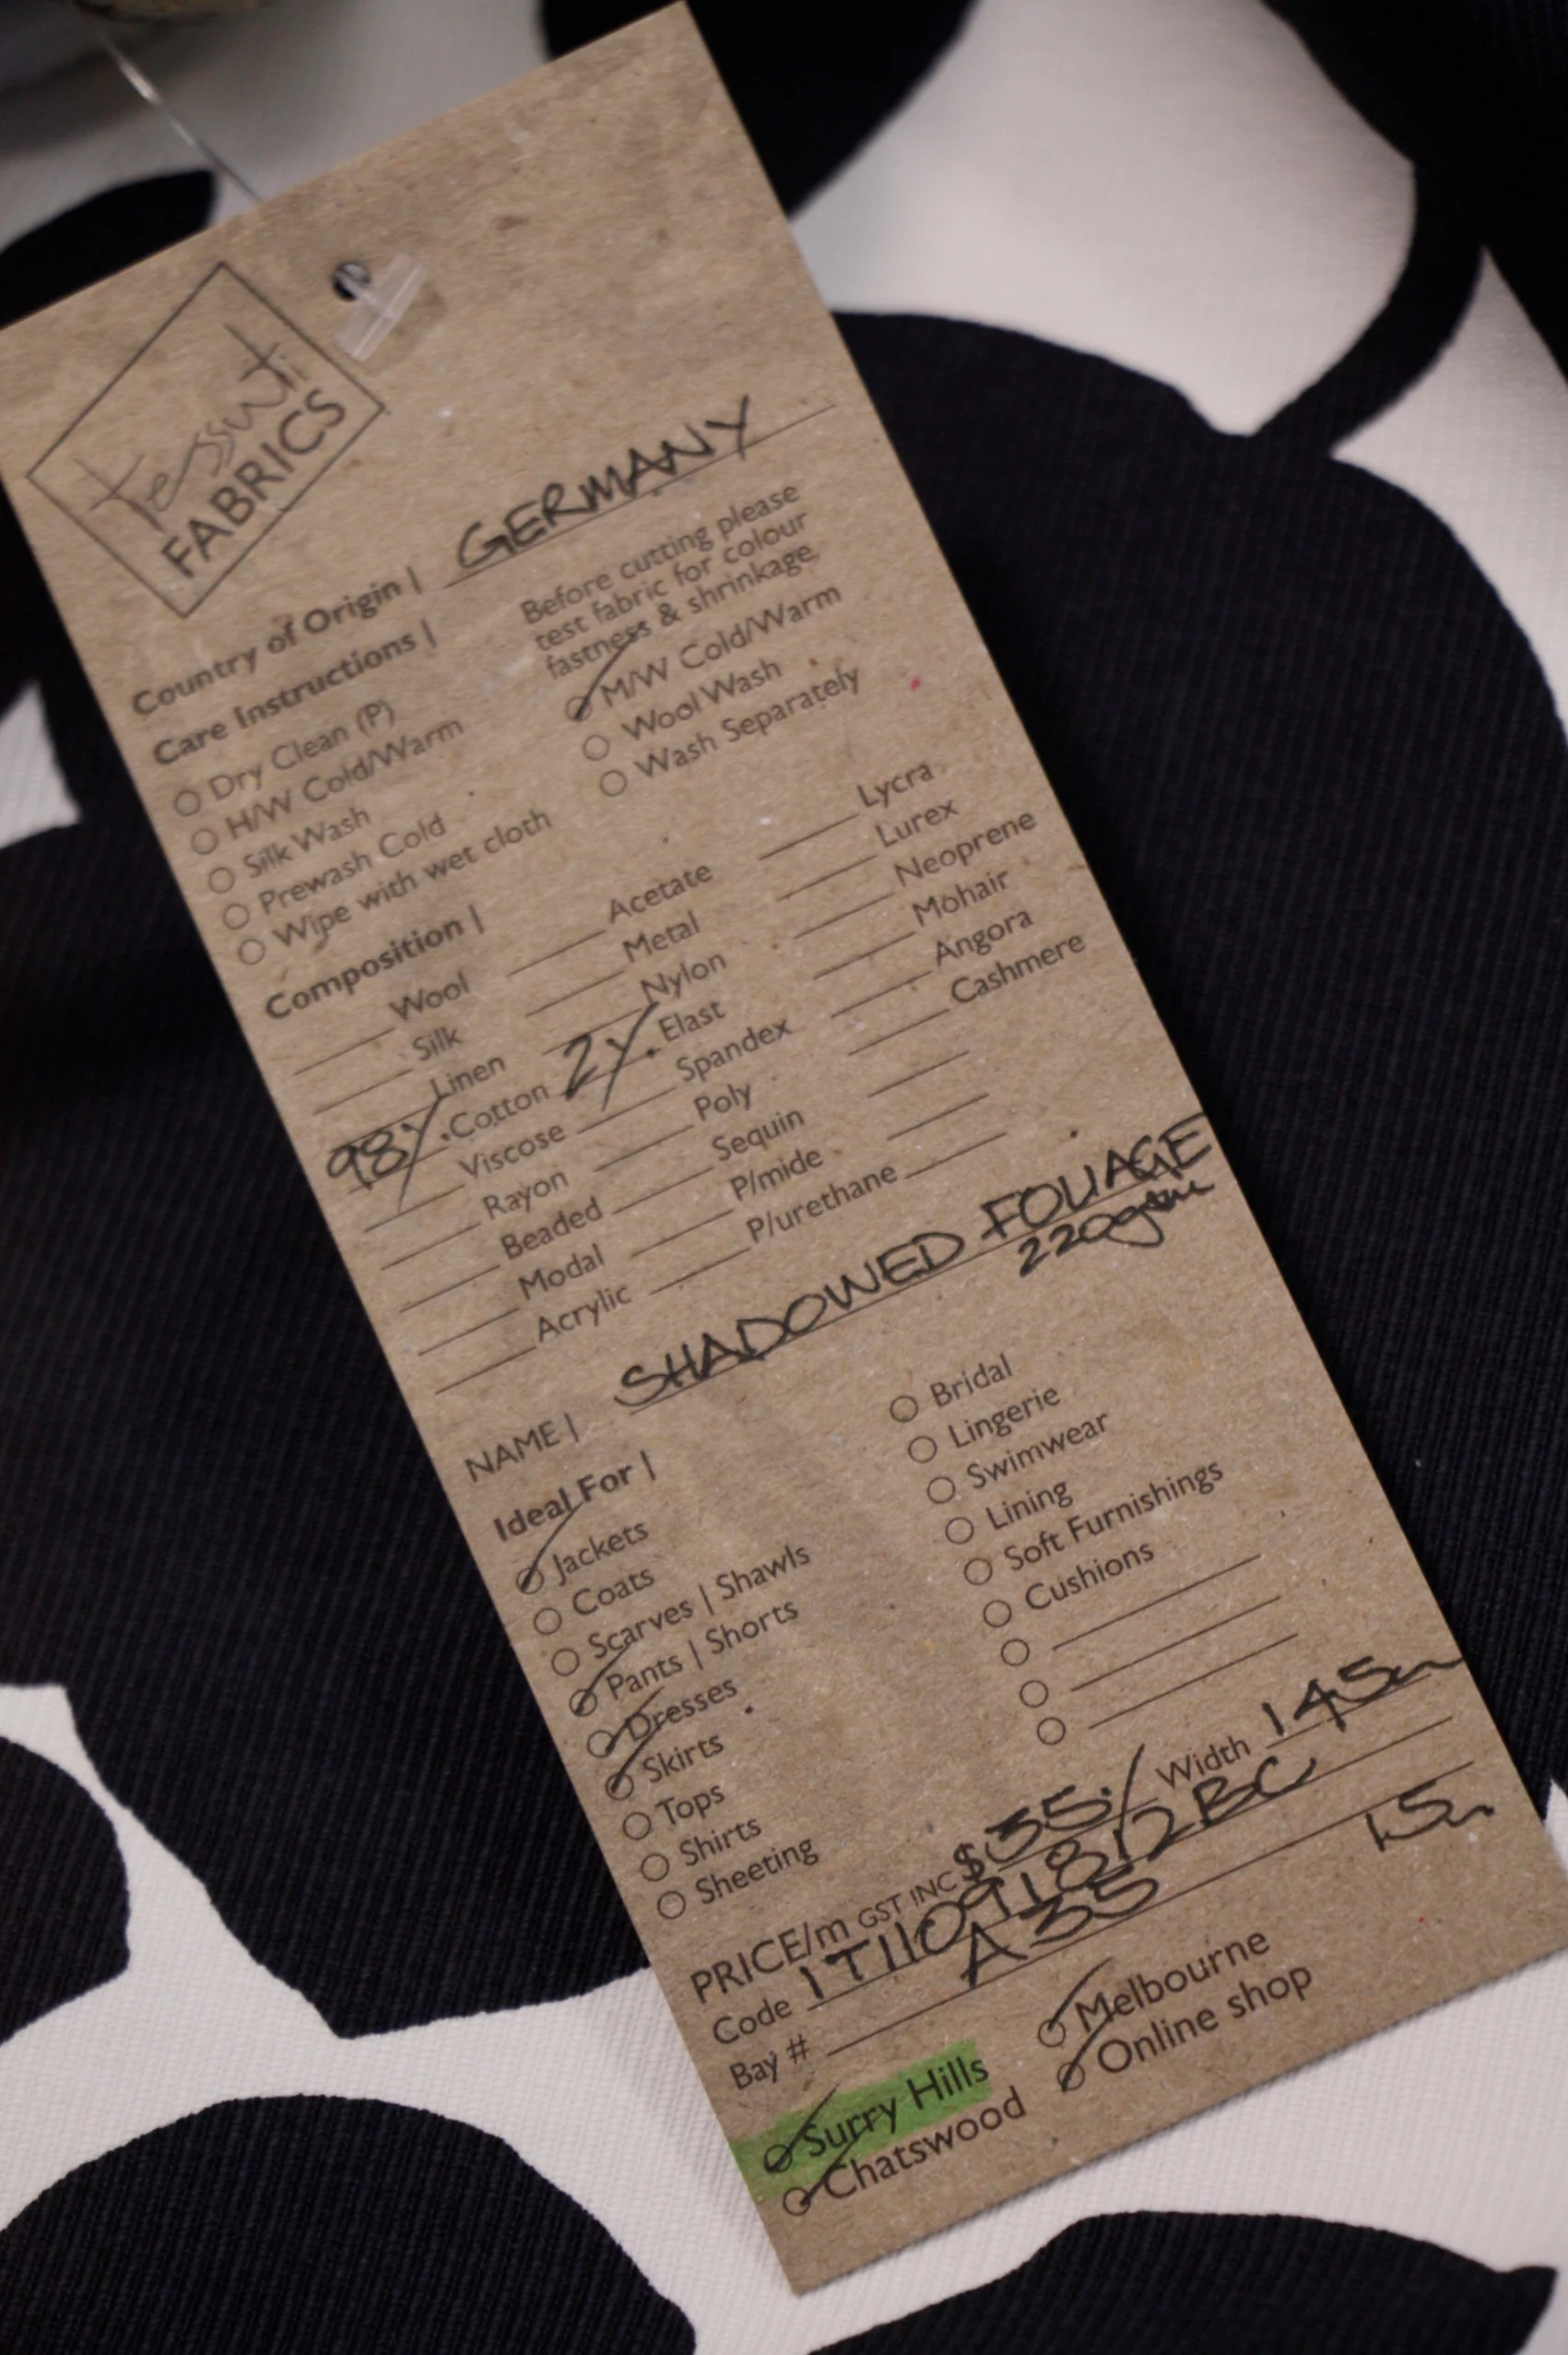 tessuti
FABRICS
Country of Origin | GERMANY
Care Instructions | Before cutting please
test fabric for colour
fastness & shrinkage
Dry Clean (P)
H/W Cold/Warm
Silk Wash
Prewash Cold
Wipe with wet cloth
M/W Cold/Warm
Wool Wash
Wash Separately
Composition |
Wool
Silk
Linen
98% Cotton
Viscose
Rayon
Beaded
Modal
Acrylic
Acetate
Metal
Nylon
2% Elast
Spandex
Poly
Sequin
P/mide
P/urethane
Lycra
Lurex
Neoprene
Mohair
Angora
Cashmere
NAME | SHADOWED FOLIAGE
220gsm
Ideal For |
Jackets
Coats
Scarves | Shawls
Pants | Shorts
Dresses
Skirts
Tops
Shirts
Sheeting
Bridal
Lingerie
Swimwear
Lining
Soft Furnishings
Cushions
PRICE/m GST INC $35. Width 145
Code 1T11091812BC
Bay # A35 15
Surry Hills
Chatswood
Melbourne
Online shop